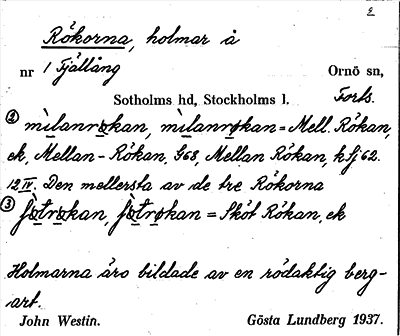 2
Rökorna, holmar å
nr 1 Fjällång Ornö sn,
Sotholms hd, Stockholms l. Forts.
② mìlanrøkan, mìlanrøkan = Mell. Rökan,
ek, Mellan-Rökan, G68, Mellan Rökan, kfj 62.
12 IV. Den mellersta av de tre Rökorna
③ = Sköt Rökan, ek
Holmarna äro bildade av en rödaktig berg-
art.
John Westin. Gösta Lundberg 1937.